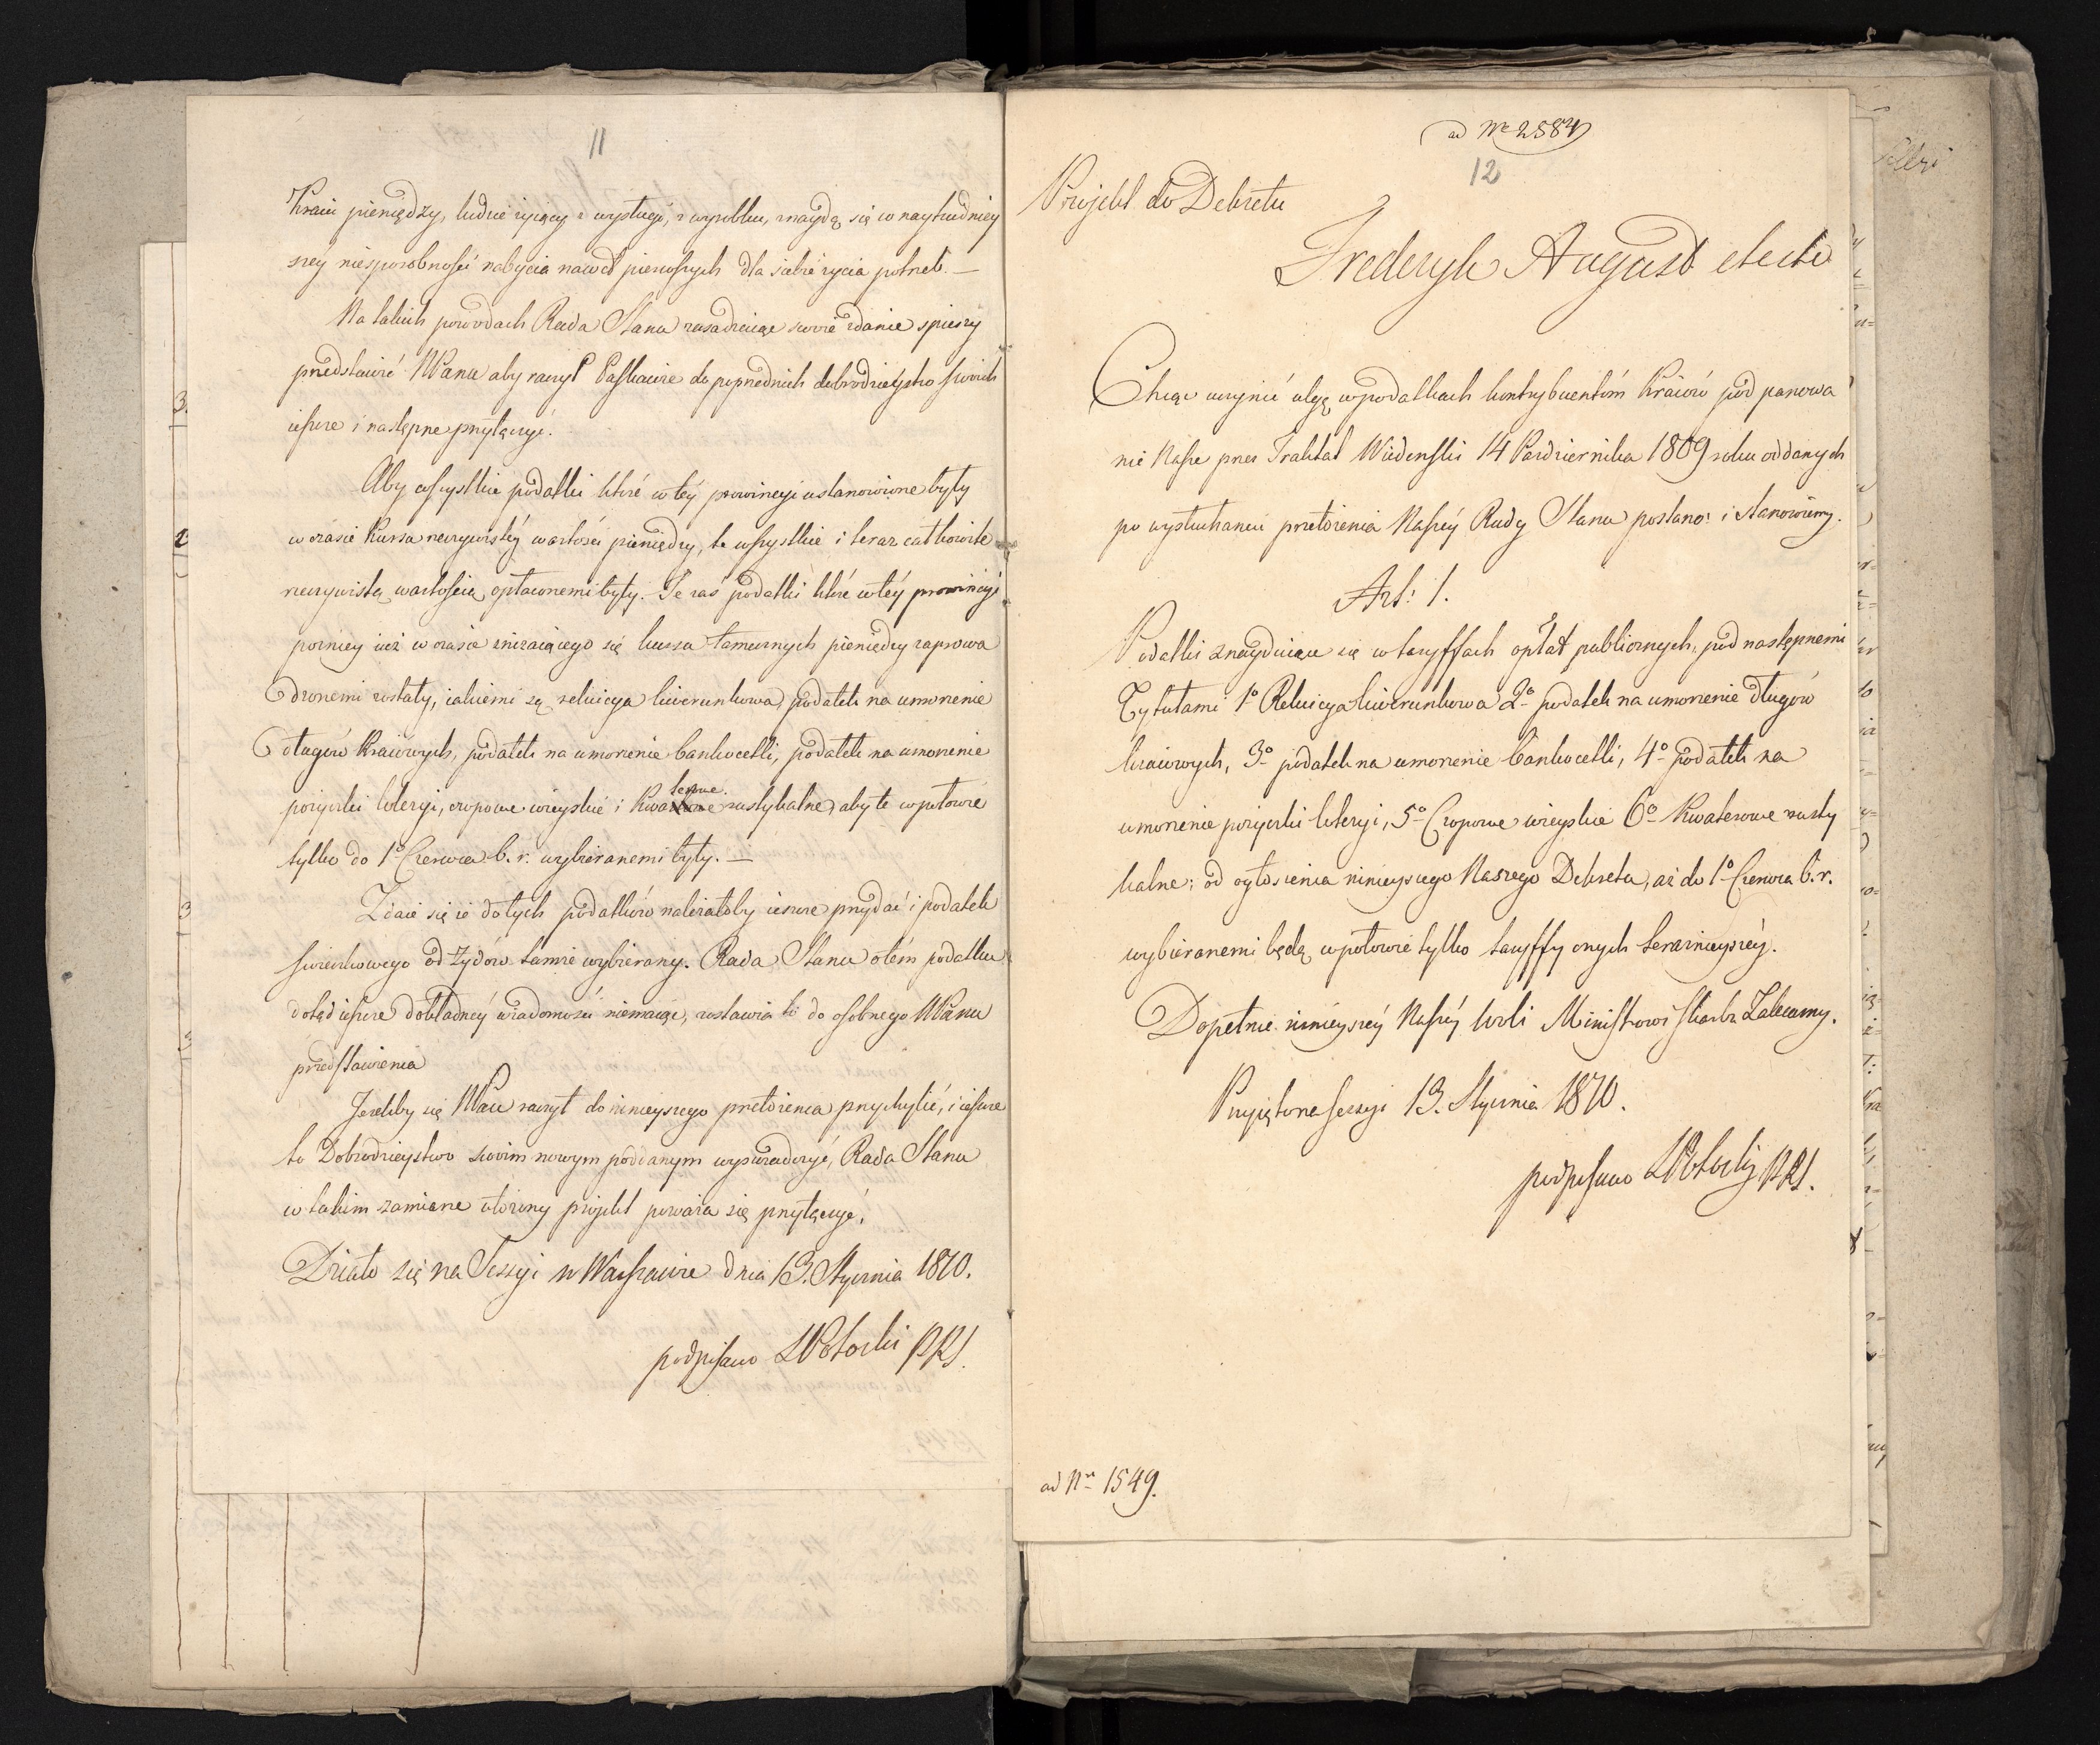 11
Kraiu pieniędzy, ludzie żyiący z wysługi, z wyrobku, znaydą się w naytrudniey
szey niesposobnośći nabycia nawet pierwszych dla siebie życia potrzeb. —
Na takich powodach Rada Stanu zasadzaiąc swoie zdanie spieszy
przedstawić WPanu aby raczył łaskawie do poprzednich dobrodzieystw swoich
ieszcze i następne przyłączyć.
Aby wszystkie podatki które w téy prowincyi ustanowione były
w czasie kursu rzeczywistéy wartości pieniędzy, te wszystkie i teraz całkowite
rzeczywistą wartością opłaconemi były. Te zaś podatki które w téy prowincyi
pozniey iuż w czasie zniżaiącego się kursu tamecznych pieniędzy zaprowa
dzonemi zostały, iakiemi są reluicya liwerunkowa, podatek na umorzenie
długów kraiowych, podatek na umorzenie bankocetli, podatek na umorzenie
pożyczki loteryi, czopowe wieyskie i kwaterowe rustykalne, aby te w połowie
tylko do 1º Czerwca b. r. wybieranemi były. —
Zdaie się że do tych podatków należałoby ieszcze przydać i podatek
świeczkowego od Żydów tamże wybierany. Rada Stanu o tém podatku
dotąd ieszcze dokładnéy wiadomości niemaiąc, zostawia to do osobnego WPanu
przedstawienia
Jeżeliby się WPan raczył do ninieyszego przełożenia przychylić, i ieszcze
to Dobrodzieystwo swoim nowym poddanym wyświadczyć, Rada Stanu
w takim zamiarze ułożony projekt poważa się przyłączyć.
Działo się na Sessyi w Warszawie dnia 13. Stycznia 1810.
podpisano S Potocki PRS.
ad Nr 2584
12
Projekt do Dekretu
Frederyk August etc etc
Chcąc uczynić ulgę w podatkach kontrybuentóm kraiów pód panowa
nie Nasze przez Traktat Wiedeński 14 Pazdziernika 1809 roku oddanych
po wysłuchaniu przełożenia Naszéy Rady Stanu postano: i stanowiemy.
Art: 1.
Podatki znayduiące się w taryffach opłat publicznych, pód następnemi
Tytułami 1º Reluicya liwerunkowa 2º podatek na umorzenie długów
kraiowych, 3º podatek na umorzenie bankocetli, 4º podatek na
umorzenie pożyczki loteryi, 5º Czopowe wieyskie 6º Kwaterowe rusty
kalne; od ogłoszenia ninieyszego Naszego Dekretu, aż do 1º Czerwca b. r.
wybieranemi będą w połowie tylko taryffy onych teraznieyszéy.
Dopełnie ninieyszéy Naszéy woli Ministrowi Skarbu Zalecamy.
Przyięto na Sessyi 13. Stycznia 1810.
podpisano S Potocki PRS.
ad Nr 1549.